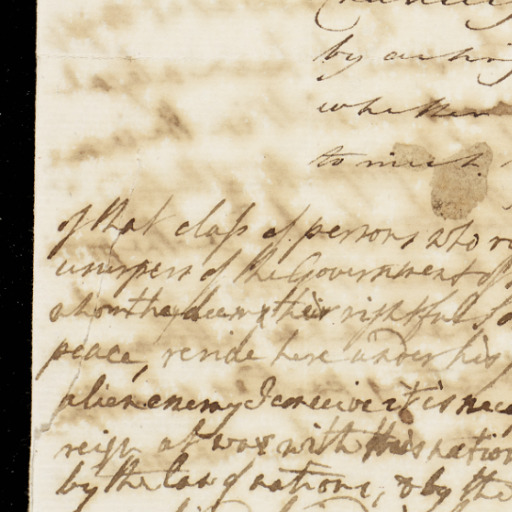 by
whether
to meet
of that class of persons who
usurpers of the Government of
whom they deem their rightful So
peace, reside here under his
alien enemy I conceive it is nec
reign at war with this nation
by the law of nations, & by the